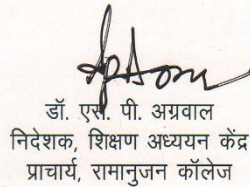 डॉ. एस. पी. अग्रवाल
निदेशक, शिक्षण अध्ययन केंद्र
प्राचार्य, रामानुजन कॉलेज